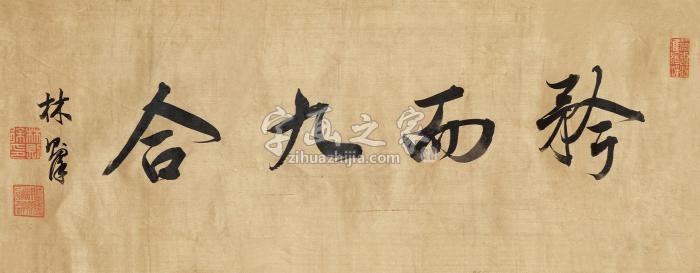 矜而九合
林
字画之家
zihuazhijia.com